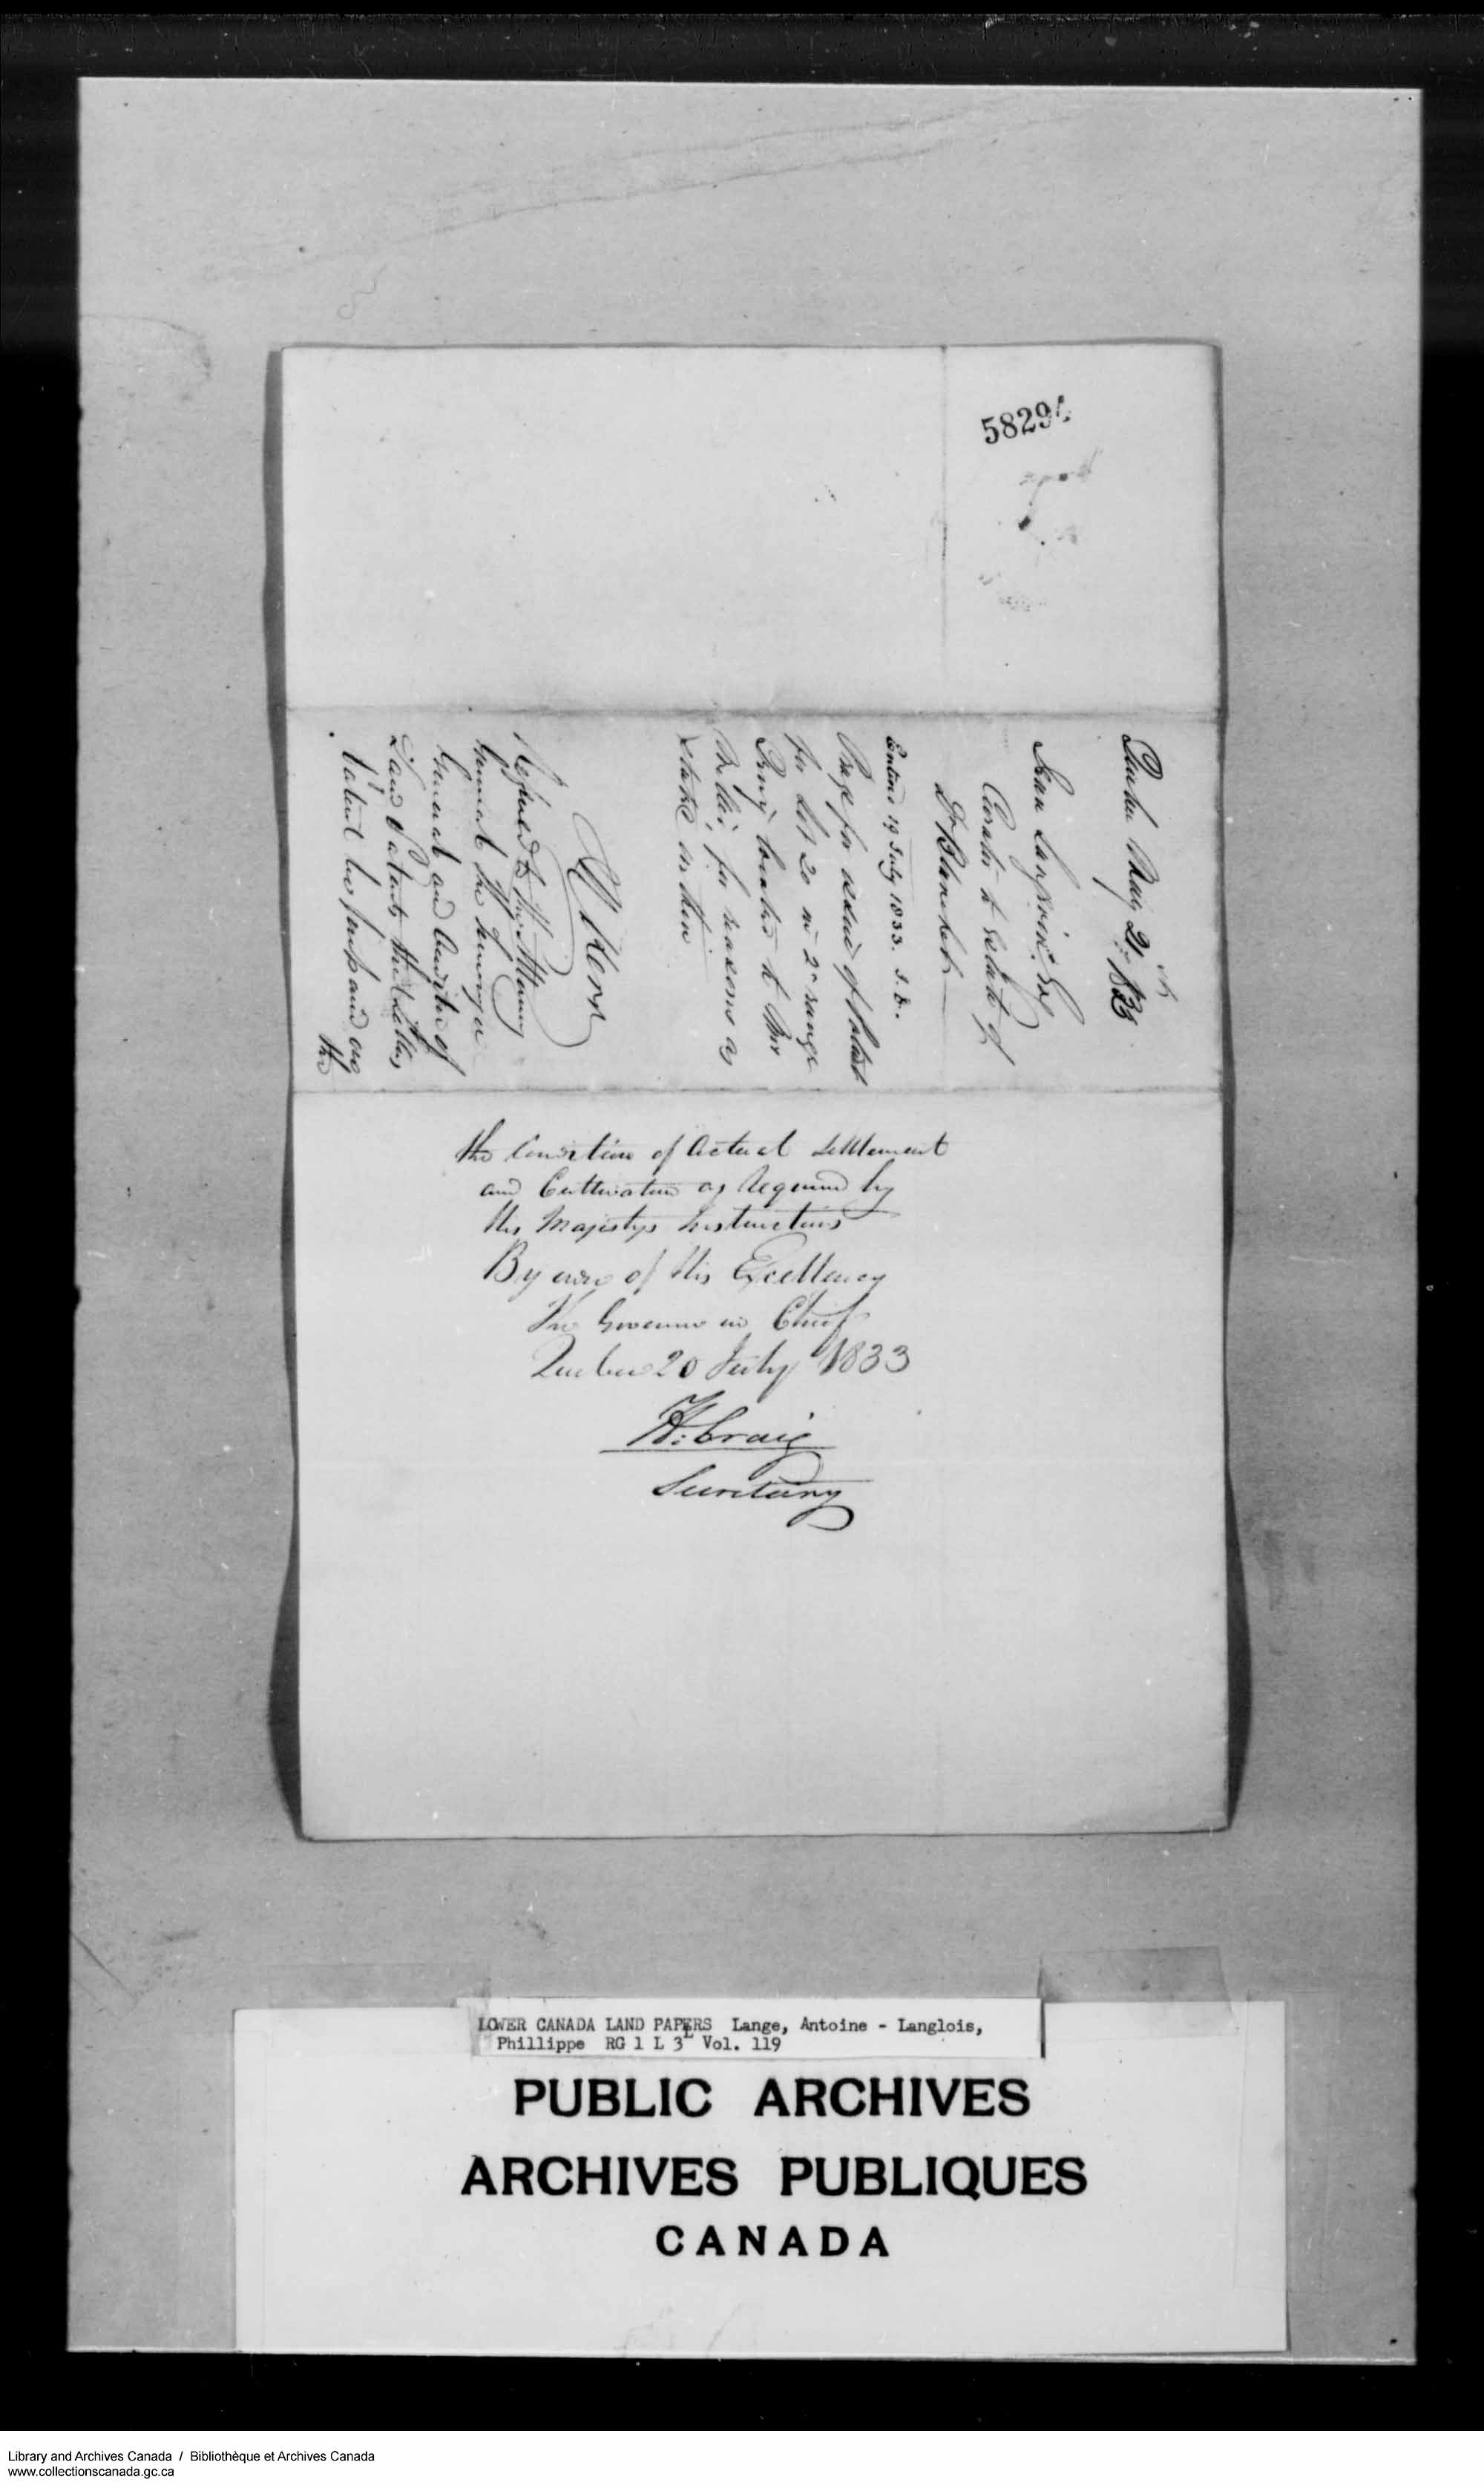 58294
Quebec May 21st 1833
Jean Langevin Es
Curator to Estate of
Dr Blanchet
Entered 19 July 1833. S.D.
Prays for issue of Patent
for Lot 20 in 2d range
located to Mr
for reasons as
stated in their
Referred to His Majestys Attorney
General the Surveyor
General and Auditor of
Land Patents the latter,
Patent
the
the Condition of Actual Settlement
and Cultivation as Required by
His Majestys Instructions
By order of His Excellency
The Governor in Chief
Quebec 20 July 1833
H: Craig
Secretary
LOWER CANADA LAND PAPERS Lange, Antoine - Langlois,
Phillippe RG 1 L 3L Vol. 119
PUBLIC ARCHIVES
ARCHIVES PUBLIQUES
CANADA
Library and Archives Canada / Bibliothèque et Archives Canada
www.collectionscanada.gc.ca